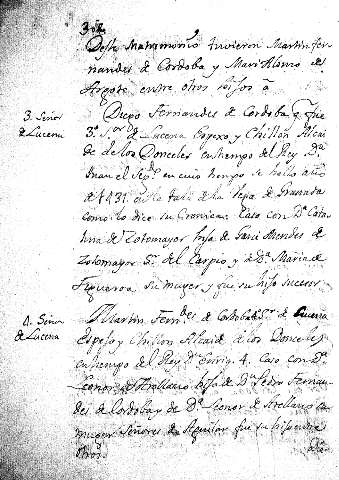 302
Deste Matrimonio tuvieron Martin fer-
nandes de Cordoba y Mari Alonso de
Argote entre otros hijos a
Diego Fernandes de Cordoba q fue
3. Señor
de Lucena
3º Sor de Lucena Espexo y Chillon Alcai
de de los Donceles en tiempo del Rey Dn
Juan el Segdo en cuio tiempo se hallo año
de 1431 en la tala de la Vega de Granada
como lo dice su Cronica: Caso con Dª Cata
lina de Sotomayor hija de Garci Mendes de
Sotomayor Sr del Carpio y de Dª Maria de
Figueroa su muger y fue su hijo sucesor
4. Señor
de Lucena
Martin Ferndes de Cordoba 4º Sr de Lucena
Espejo y Chillon Alcaide de los Donceles
en tiempo del Rey Dn Enriq. 4. Caso con Dª
Leonor de Arellano hija de Dn Pedro Fernan
des de Cordoba y de Dª Leonor de Arellano su
muger Señores de Aguilar fue su hijo entre
otros